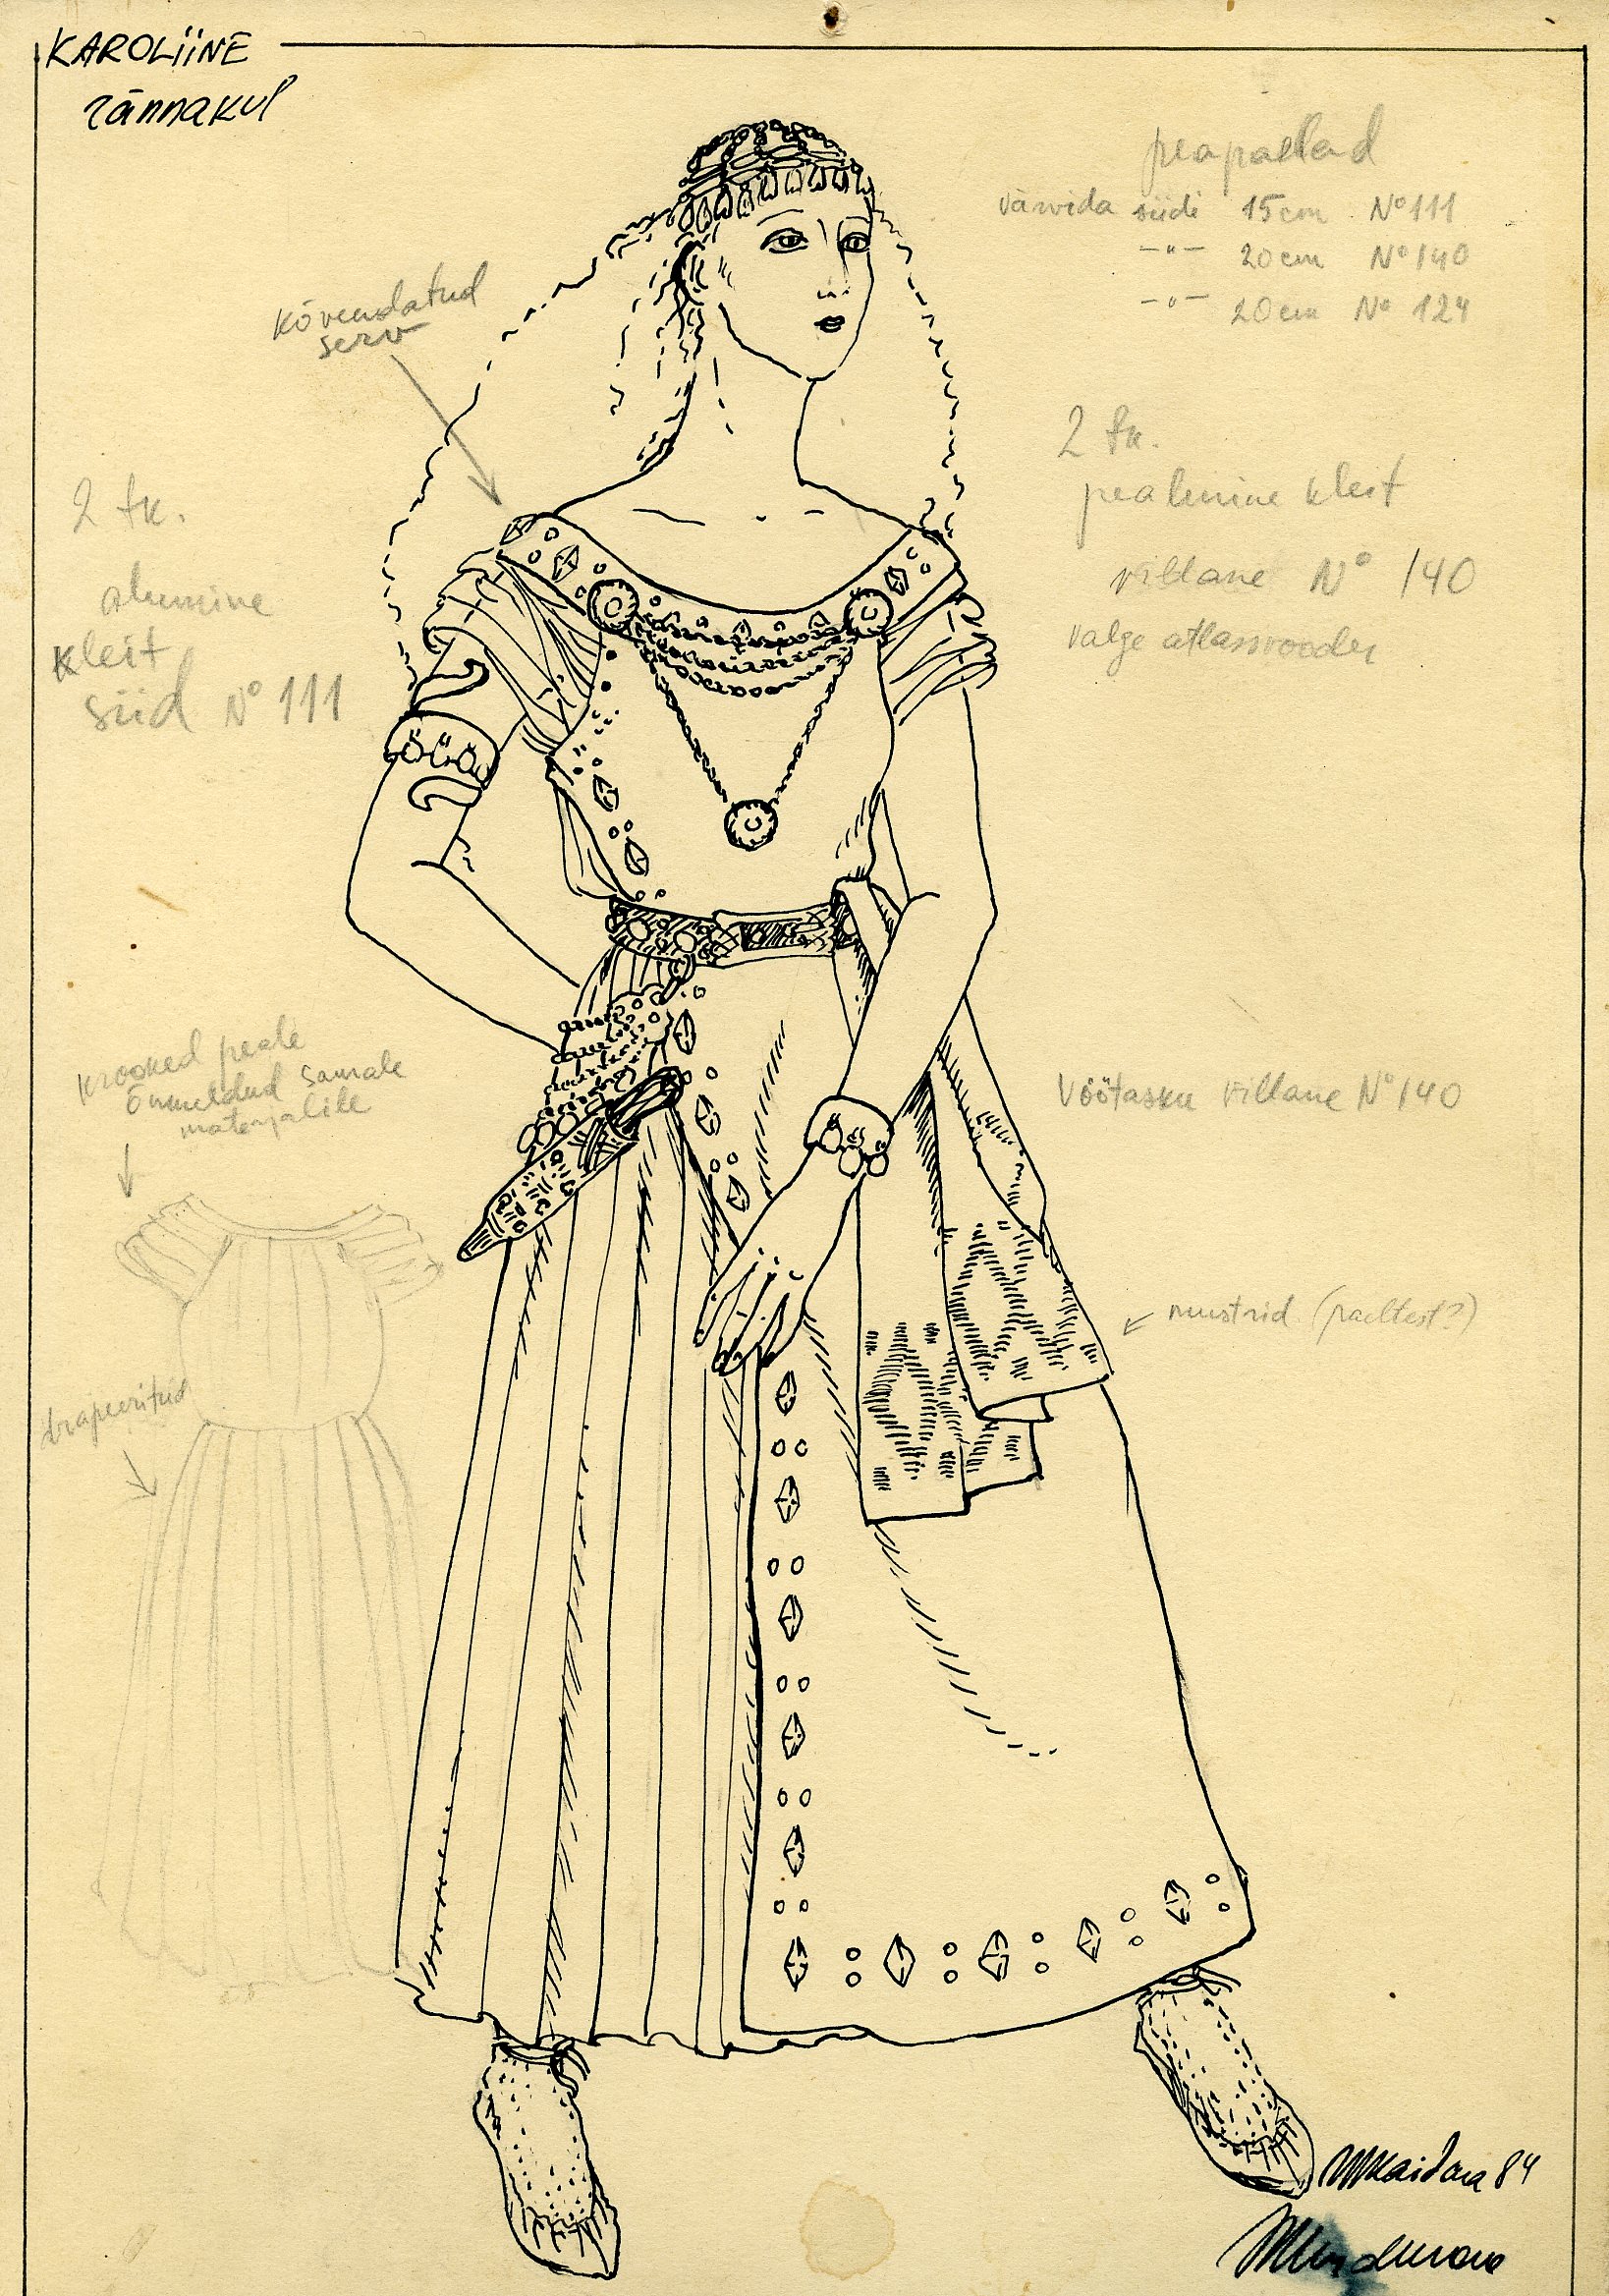 KAROLIINE
rännakul
peapaelad
värvida siidi 15cm No 111
—"— 20cm No 140
—"— 20cm No 124
kõvendatud
serv
2 tk.
pealmine kleit
villane No 140
valge atlassvooder
2 tk.
alumine
kleit
siid No 111
krooked peale
õmmeldud samale
materjalile
Vöötasku villane No 140
mustrid (paeltest?)
drapeeritud
84